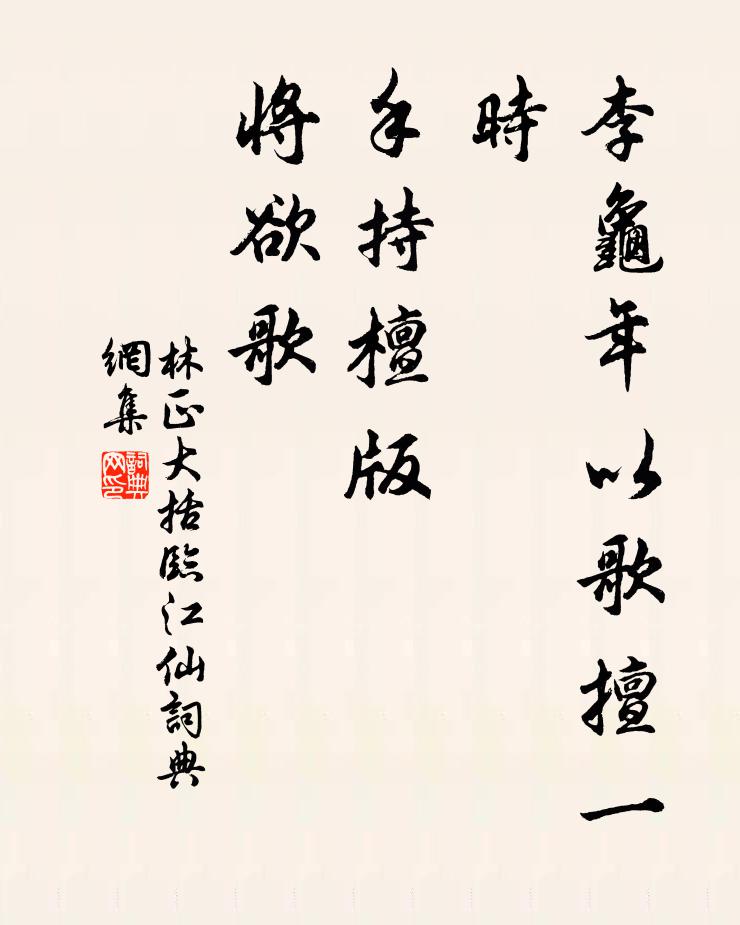 李龜年以歌擅一
時
手持檀版
將欲歌
林正大括臨江仙詞典
網集
詞典網印